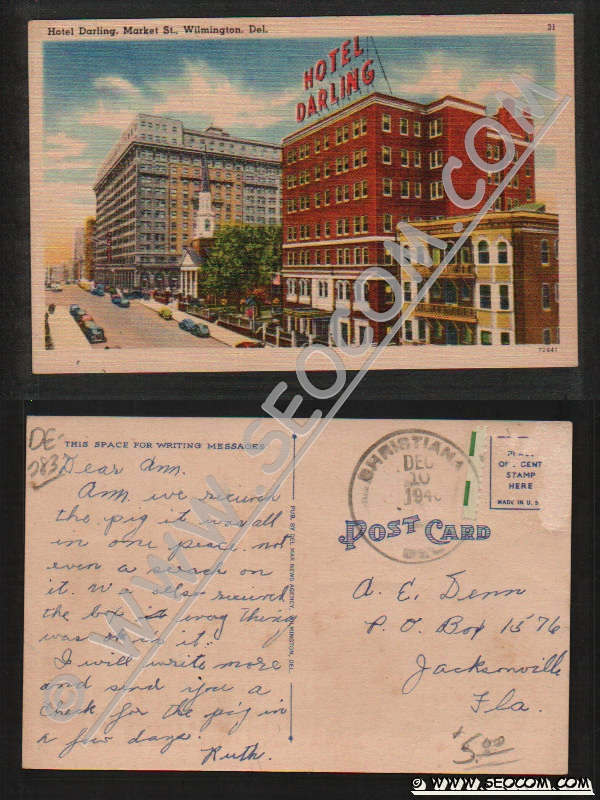 Hotel Darling, Market St., Wilmington, Del.
31
HOTEL
DARLING
72441
© WWW.SEOCOM.COM
DE-
THIS SPACE FOR WRITING MESSAGES
Dear Ann.
Ann we received
the pig it was all
in one peace not
even a scrach on
it. We also received
the box it every thing
was ok in it.
I will write more
and send you a
check for the pig in
a few days.
Ruth.
PUB. BY DEL MAR NEWS AGENCY, WILMINGTON, DEL.
CHRISTIANA
DEC
10
DEL
OF CENT
STAMP
HERE
MADE IN U.S.
POST CARD
A. E. Denn
P. O. Box 1576
Jacksonville
Fla.
$5.00
© WWW.SEOCOM.COM